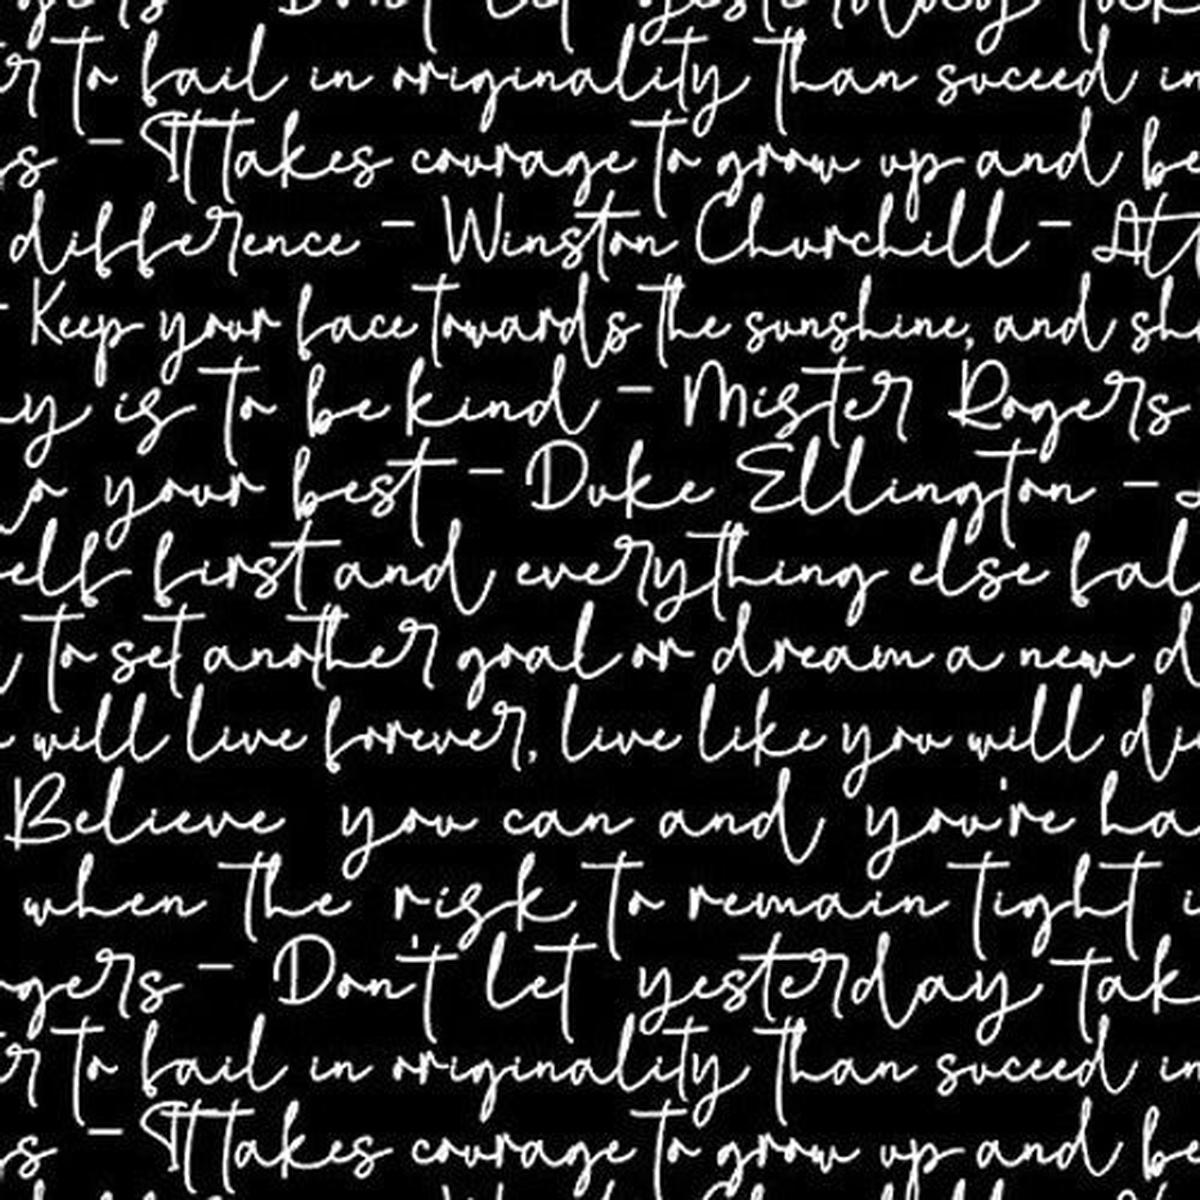 Don't let yesterday took
to fail in originality than suceed in
- It takes courage to grow up and be
difference - Winston Churchill - Att
Keep your face towards the sunshine, and sh
is to be kind - Mister Rogers
your best - Duke Ellington -
elf first and everything else fal
to set another goal or dream a new d
will live forever, live like you will die
Believe you can and you're ha
when the risk to remain tight i
ogers - Don't let yesterday tak
er to fail in originality than suceed in
s - It takes courage to grow up and be